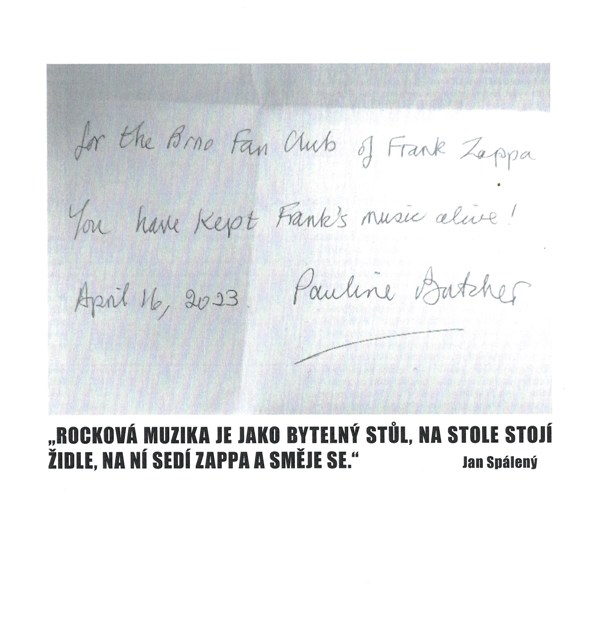 for the Brno Fan Club of Frank Zappa
You have kept Frank's music alive!
April 16, 2023 Pauline Butcher
„ROCKOVÁ MUZIKA JE JAKO BYTELNÝ STŮL, NA STOLE STOJÍ
ŽIDLE, NA NÍ SEDÍ ZAPPA A SMĚJE SE.“ Jan Spálený